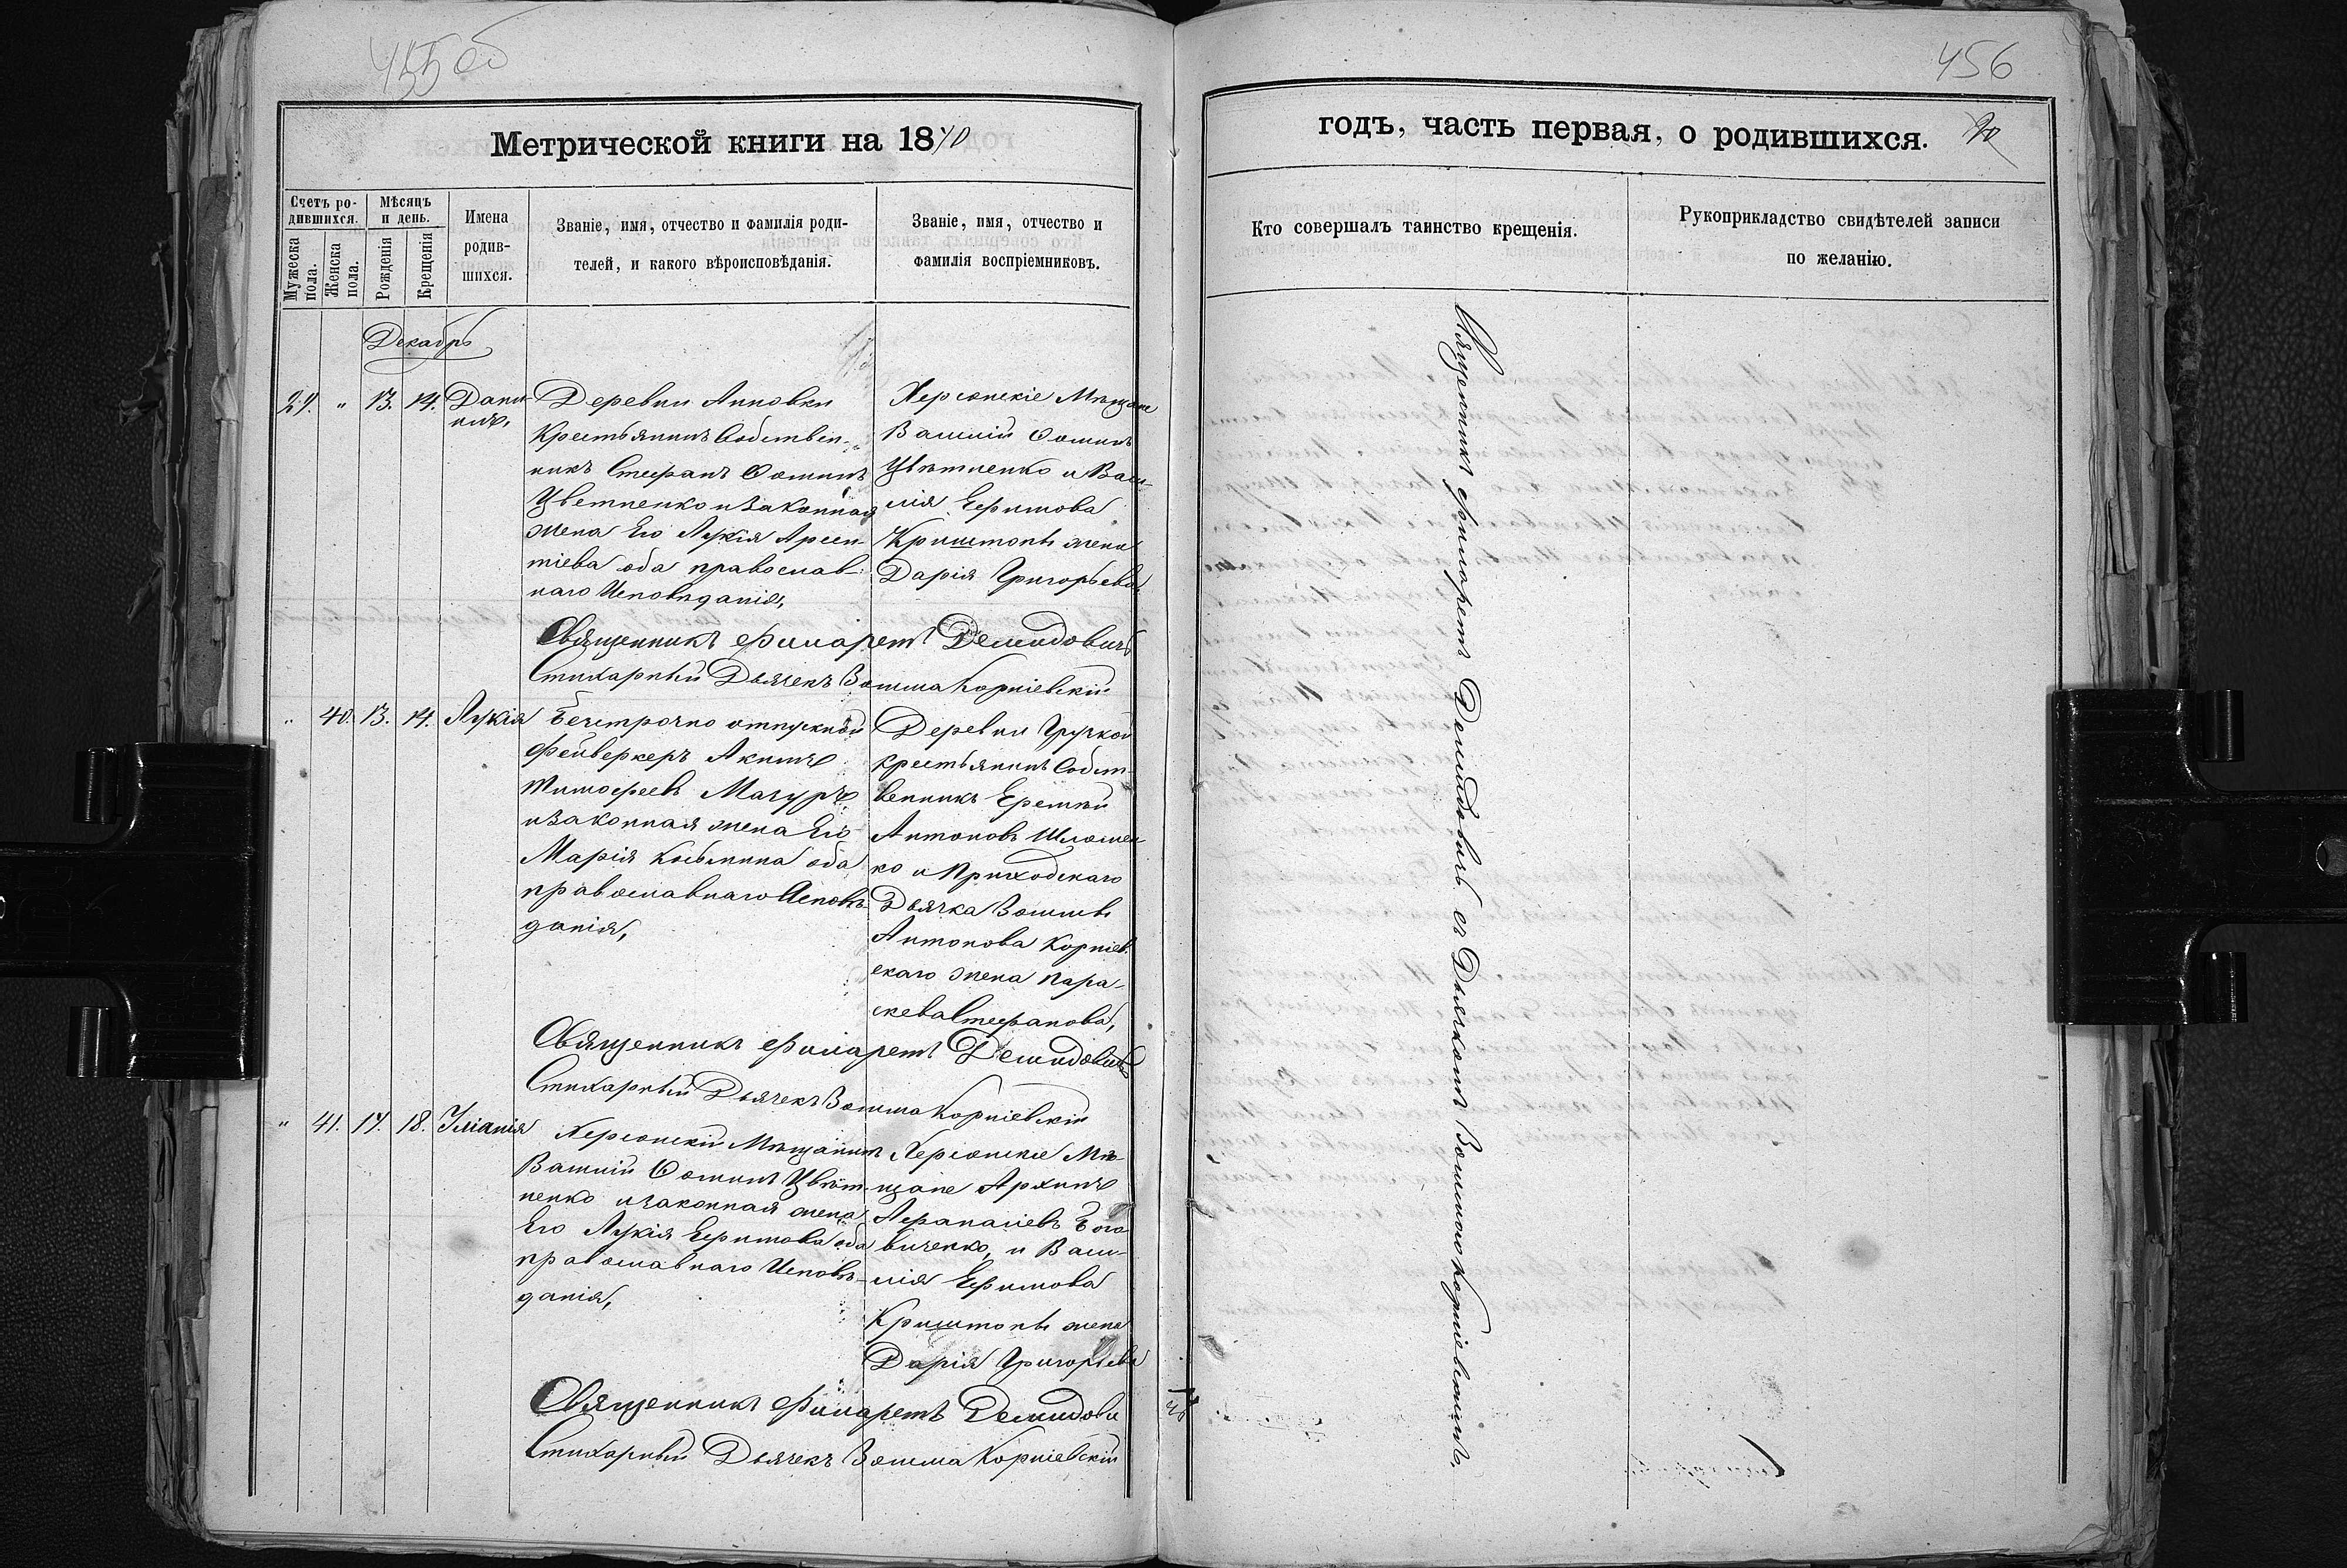 455 об
456
Метрической книги на 1870
годъ, часть первая, о родившихся.
Счетъ ро-
дившихся.
Мужеска
пола.
Женска
пола.
Мѣсяцъ
и день.
Рожденія
Крещенія
Имена
родив-
шихся.
Званіе, имя, отчество и фамилія роди-
телей, и какого вѣроисповѣданія.
Званіе, имя, отчество и
фамилія воспріемниковъ.
Кто совершалъ таинство крещенія.
Рукоприкладство свидѣтелей записи
по желанію.
Декабрь
27. " 13. 14. Дани-
илъ,
Деревни Анновки
Крестьянинъ Собствен-
никъ Стефанъ Фоминъ
Цветненко и законная
жена Его Лукія Арсен-
тіева оба православ-
наго Исповѣданія,
Херсонскіе Мѣщане
Василій Фоминъ
Цвѣтненко и Васи-
лія Ефимова
Криштопы жена
Дарія Григорьева,
Священникъ Филаретъ Демидовичъ
Стихарный Дьячекъ Зосима Корніевскій
" 40. 13. 14. Лукія
Безсрочно отпускной
Фейверкеръ Акимъ
Тимофеевъ Мачуръ
и законная жена Его
Марія Козьмина оба
православнаго Исповѣ-
данія,
Деревни
крестьянинъ Собст-
венникъ Еремѣй
Антоновъ
ко и Приходскаго
Дьячка Зосимы
Антонова Корніев-
скаго жена Пара-
скева Стефанова,
Священникъ Филаретъ Демидовичъ
Стихарный Дьячекъ Зосима Корніевскій
" 41. 17. 18. Уліанія
Херсонскій Мѣщанинъ
Василій Фоминъ Цвѣт-
ненко и законная жена
Его Лукія Ефимова оба
православнаго Исповѣ-
данія,
Херсонскіе Мѣ-
щане Архипъ
Афанасіевъ
и Васи-
лія Ефимова
Криштопы жена
Дарія Григорьева
Священникъ Филаретъ Демидови
Стихарный Дьячекъ Зосима Корніевскій
Священникъ Филаретъ Демидовичъ съ Дьячкомъ Зосимою Корніевскимъ.